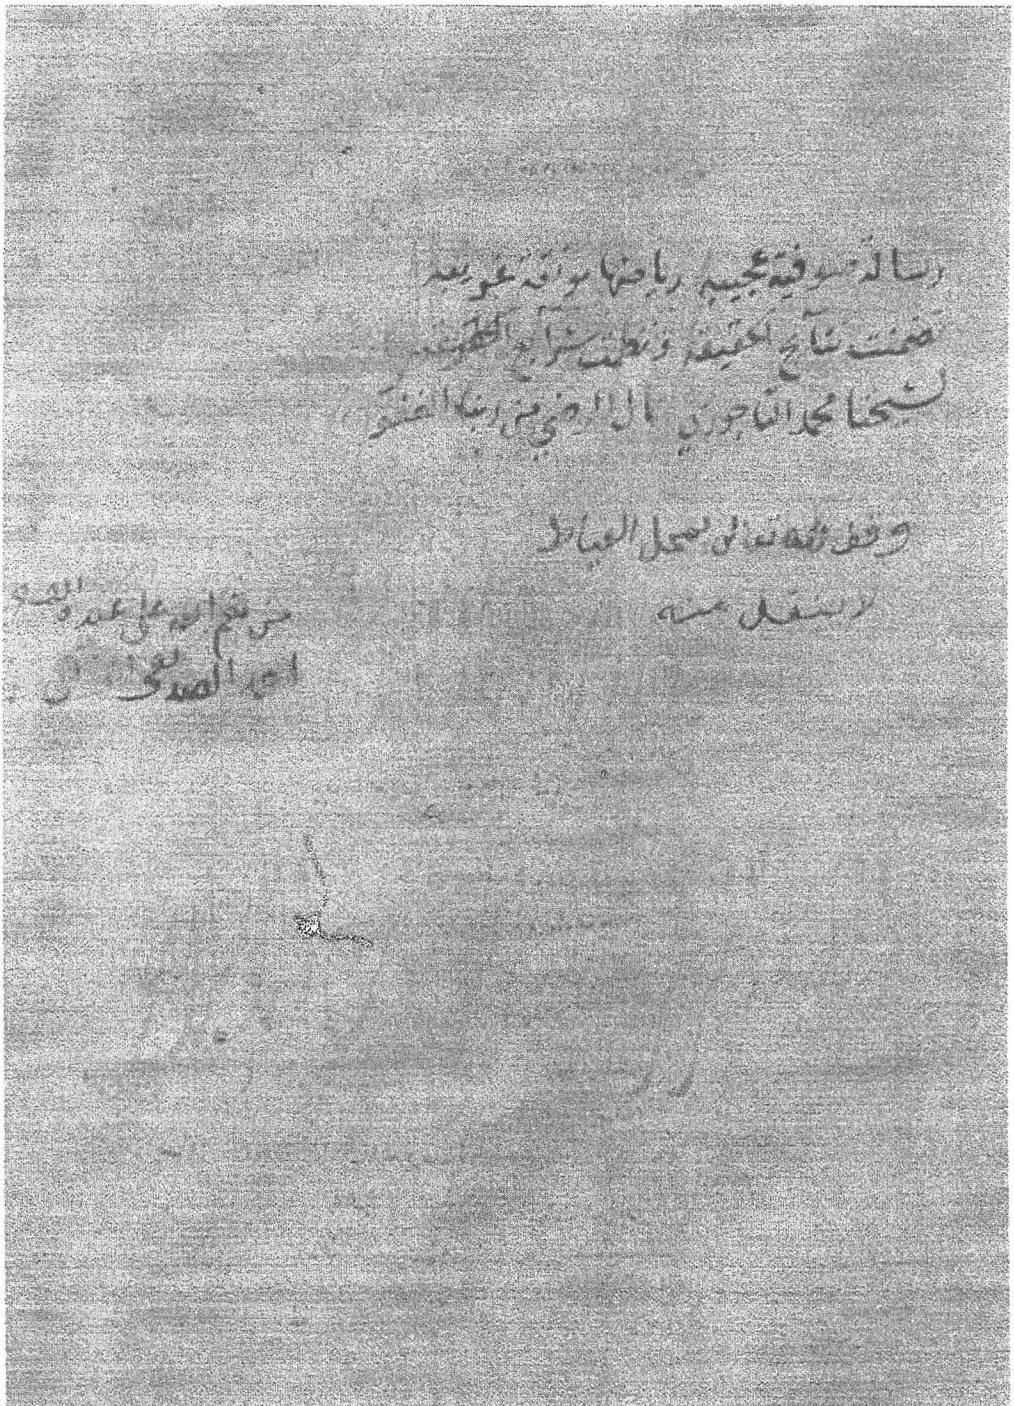 رسالة صوفية عجيبه رياضها مونقة غريبه
تضمنت نتآيج الحقيقه ونظمت شرآيع الطريقه
لشيخنا محمد التاجوري نال الرضى من ربنا الغفور
وقف لله تعالى لمحل العياط
لا ينتقل منه
من نعم الله على عبده
احمد الصديقى